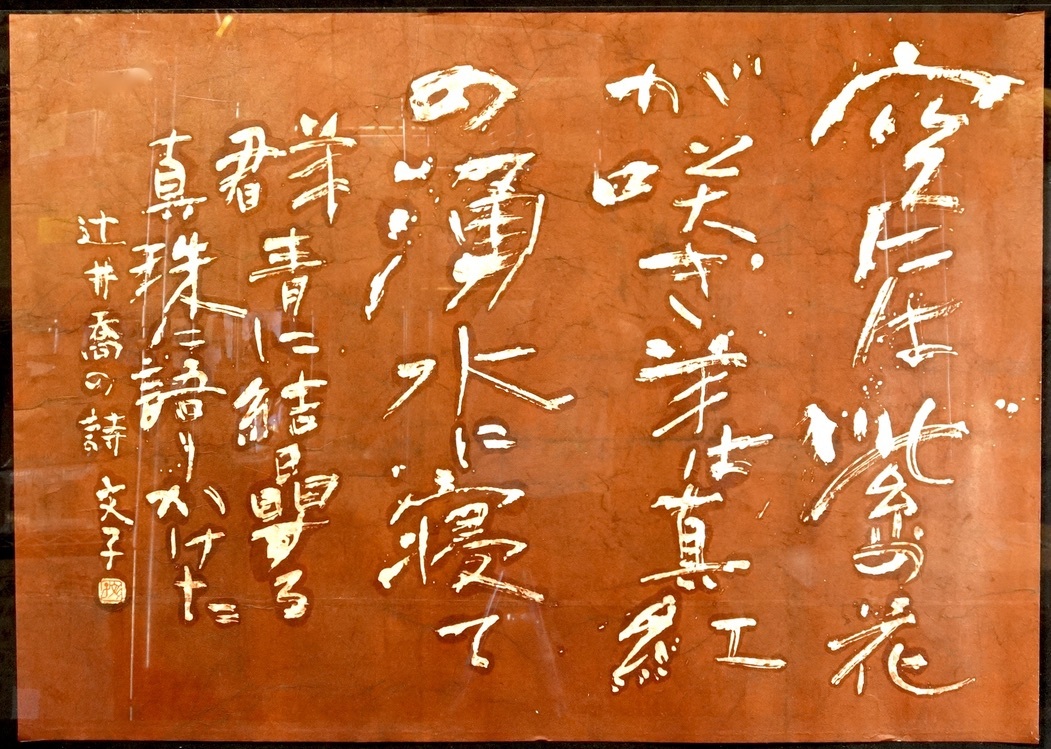 空には紫の花
が咲き、羊は真紅
の湧水に寝て
群青に結晶する
真珠に語りかけた
辻井喬の詩 文子